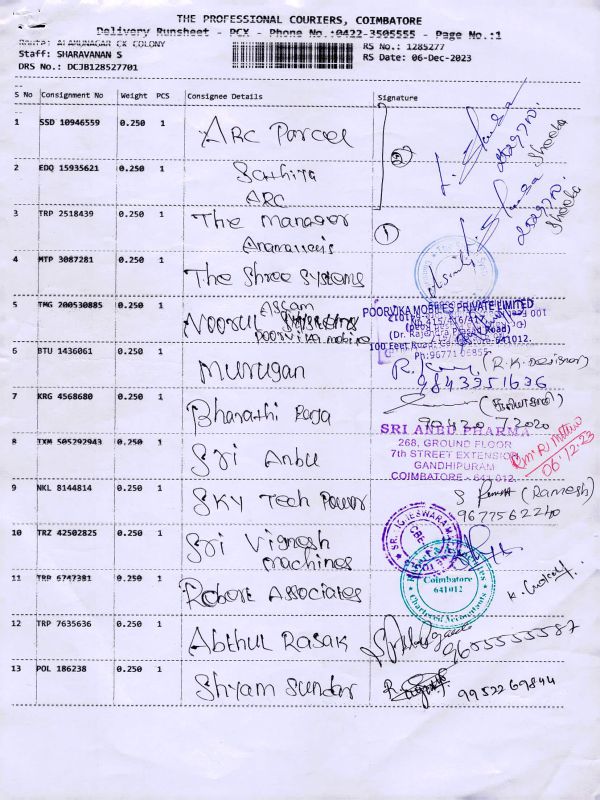 THE PROFESSIONAL COURIERS, COIMBATORE
Delivery Runsheet - PCX - Phone No.:0422-3505555 - Page No.:1
Route: ALAMUNAGAR CK COLONY
Staff: SHARAVANAN S
DRS No.: DCJB128527701
RS No.: 1285277
RS Date: 06-Dec-2023
S No Consignment No Weight PCS Consignee Details Signature
1 SSD 10946559 0.250 1 ARC Parcel
2 EDQ 15935621 0.250 1 Sathiya
ARC
3 TRP 2518439 0.250 1 The Manager
4 MTP 3087281 0.250 1 The Shree Systems
5 TMG 200530885 0.250 1 Noorul Assam
poorvika mobile
POORVIKA MOBILES PRIVATE LIMITED
(Dr. Rajendra Prasad Road)
6 BTU 1436061 0.250 1 Murugan
9843951636
7 KRG 4568680 0.250 1 Bharathi Raja
8 TXM 505292943 0.250 1 Sri Anbu
SRI ANBU PHARMA
268, GROUND FLOOR
7th STREET EXTENSION
GANDHIPURAM
COIMBATORE - 641 012.
06.12.23
9 NKL 8144814 0.250 1 SKY Tech Power
(Ramesh)
9677562240
10 TRZ 42502825 0.250 1 Sri Vignesh
machines
11 TRP 6747381 0.250 1 Robert Associates
Coimbatore
641012
Chartered Accountants
12 TRP 7635636 0.250 1 Abthul Rasak
9655555587
13 POL 186238 0.250 1 Shyam Sundar
9952269844